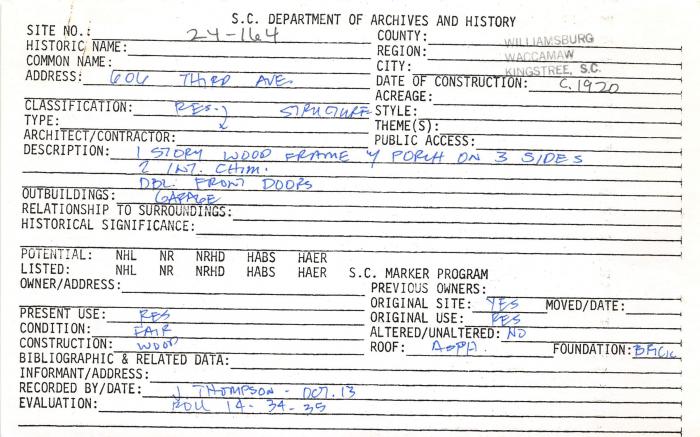 S.C. DEPARTMENT OF ARCHIVES AND HISTORY
SITE NO.: 24-164
HISTORIC NAME:
COMMON NAME:
ADDRESS: 606 THIRD AVE.
COUNTY: WILLIAMSBURG
REGION: WACCAMAW
CITY: KINGSTREE, S.C.
DATE OF CONSTRUCTION: C. 1920
ACREAGE:
CLASSIFICATION: RES. STRUCTURE
TYPE:
ARCHITECT/CONTRACTOR:
STYLE:
THEME(S):
PUBLIC ACCESS:
DESCRIPTION: 1 STORY WOOD FRAME PORCH ON 3 SIDES
2 INT. CHIM.
DBL FRONT DOORS
OUTBUILDINGS: GARAGE
RELATIONSHIP TO SURROUNDINGS:
HISTORICAL SIGNIFICANCE:
POTENTIAL: NHL NR NRHD HABS HAER
LISTED: NHL NR NRHD HABS HAER S.C. MARKER PROGRAM
OWNER/ADDRESS:
PREVIOUS OWNERS:
ORIGINAL SITE: YES MOVED/DATE:
PRESENT USE: RES
ORIGINAL USE: RES
CONDITION: FAIR
ALTERED/UNALTERED: NO
CONSTRUCTION: WOOD
ROOF: ASPH. FOUNDATION: BRICK
BIBLIOGRAPHIC & RELATED DATA:
INFORMANT/ADDRESS:
RECORDED BY/DATE: J. THOMPSON - OCT. 13
EVALUATION: ROLL 14-34-35